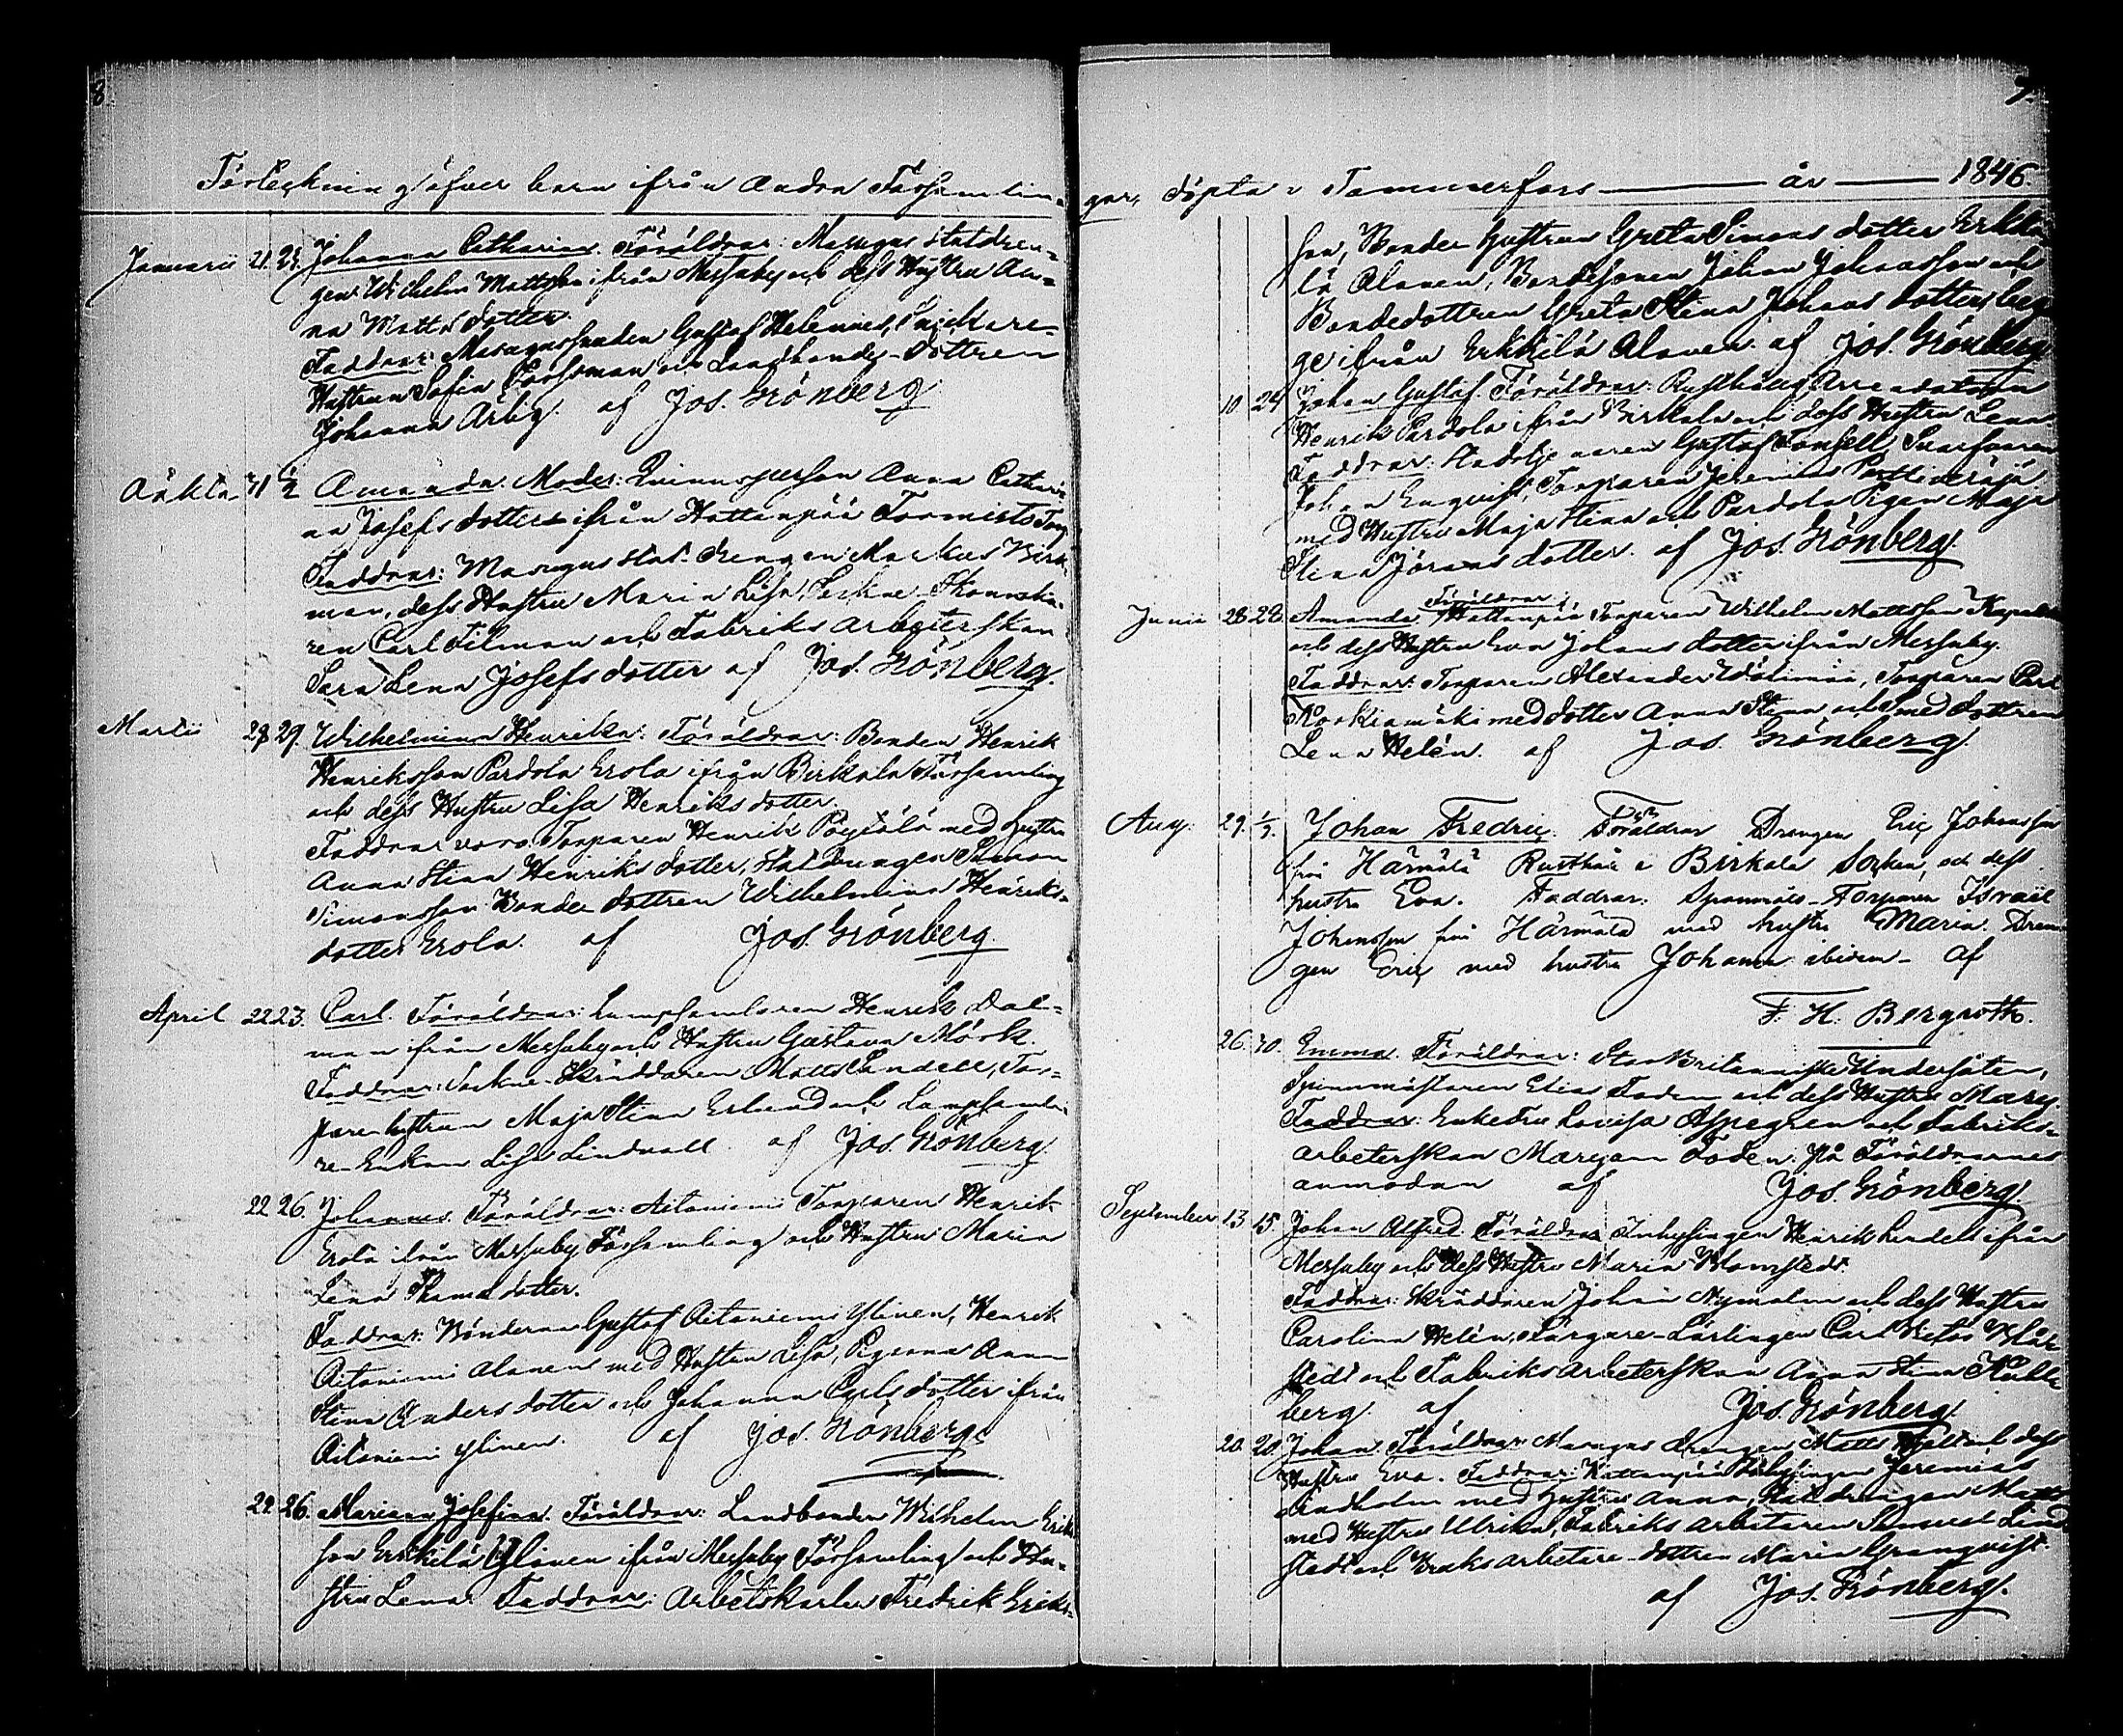 8
Förteckning öfver barn ifrån Andra Församlin-
Januarii 21. 23. Johanna Catharina. Föräldrar: Masugns statdren-
gen Wilhelm Mattsson ifrån Messuby och dess Hustru An-
na Matts dotter.
Faddrar: Masugnssmeden Gustaf Helenius, Snickare-
Hustrun Sofia Forssman och Landbonde-Dottren
Johanna Arbig. af Jos. Grönberg
Oäkta 31 1/2 Amanda. Moder: Qvinnspersson Anna Cathari-
na Josefs dotter ifrån Hattanpää Tormisto Torp
Faddrar: Masugns stat drengen Markus Birk-
man, dess Hustru Maria Lisa, Sockne-Skomaka-
ren Carl Tilman och Fabriks Arbeterskan
Sara Lena Josefsdotter af Jos. Grönberg.
Martii 28 29. Wilhelmina Henrika. Föräldrar: Bonden Henrik
Henriksson Pardola Erola ifrån Birkala Församling
och dess Hustru Lisa Henriksdotter.
Faddrar voro: Torparen Henrik Pöytälä med hustru
Anna Stina Henriks dotter, Statdrengen Simon
Simonsson Bonde dottren Wilhelmina Henriks-
dotter Erola. af Jos. Grönberg.
April 22 23. Carl. Föräldrar: Lumpsamlaren Henrik Dal-
man ifrån Messuby och Hustru Gustava Mörk.
Faddrar: Sockne-Skräddaren Matts Sandell, Tor-
pare-hustrun Maja Stina Erlund och Lumpsamla-
re-Enkan Lisa Lindvall. af Jos. Grönberg
22 26. Johannes. Föräldrar: Aitoniemi Torparen Henrik
Erola ifrån Messuby Församling och Hustru Maria
Lena Thomasdotter.
Faddrar: Bönderna Gustaf Aitoniemi Ylinen, Henrik
Aitoniemi Alanen med Hustru Lisa, Pigorna Anna
Stina Anders dotter och Johanna Carls dotter ifrån
Aitoniemi Ylinen. af Jos. Grönberg
22 26. Mariana Josefina. Föräldrar: Landbonden Wilhelm Eriks
son Erkkilä Ylinen ifrån Messuby Församling och Hu-
stru Lena. Faddrar: Arbetskarlen Fredrik Eriks-
7.
gar, döpta i Tammerfors år 1846
son, Bonden Hustrun Greta Simons dotter Erkki-
lä Alanen, Bondesonen Johan Johansson och
Bondedottren Greta Stina Johans dotter, beg-
ge ifrån Erkkilä Alanen. af Jos. Grönberg
10 24 Johan Gustaf. Föräldrar: Rusthålls Arrendatorn
Henrik Pardola ifrån Birkala och dess Hustru Lena
Faddrar: Stadstjenaren Gustaf Tonsell, Svarfvaren
Johan Enqvist, Torparen Jeremias
med Hustru Maja Stina och Pardola Pigan Maja
Stina Jörans dotter. af Jos. Grönberg.
Junii 28 28. Amanda. Föräldrar: Hattanpää Torparen Wilhelm Mattsson
och dess Hustru Eva Johans dotter ifrån Messuby.
Faddrar: Torparen Alexander, Torparen Carl
Koskismäki med dotter Anna Stina och Smed dottren
Lena Helén. af Jos. Grönberg.
Aug. 29. 1/9. Johan Fredric. Föräldrar Drengen Eric Johansson
från Härmälä Rusthåll i Birkala Socken, och dess
hustru Eva. Faddrar: Torparen Israël
Johansson från Härmälä med hustru Maria. Dren-
gen Eric med hustru Johanna ibidem- af
F. H. Bergroth.
26. 30. Emma. Föräldrar: Stor Britanniske Undersåten,
Spinnmästaren Elias Foden och dess Hustru Mary.
Faddrar: Enkefru Lovisa Aspegren och Fabriks-
arbeterskan Maryann Foden. På Föräldrarnes
anmodan af Jos. Grönberg.
September 13 15. Johan Alfred. Föräldrar Inhysingen Henrik Lindell ifrån
Messuby och dess Hustru Maria Blomstedt.
Faddrar: Skräddaren Johan Nymalm och dess Hustru
Carolina Helén, Färgare-Lärlingen Carl
stedt och Fabriks Arbeterskan Anna Stina
berg. af Jos. Grönberg
20. 20. Johan. Föräldrar: Masugns drengen Matts och dess
Hustru Eva. Faddrar: Hattanpää Inhysingen Jeremias
Lindholm med Hustru Anna, Stat drengen Matts
med Hustru Ulrika, Fabriks arbetaren Samuel Lind-
stedt och Bruksarbetare-dottren Maria Granqvist.
af Jos. Grönberg.